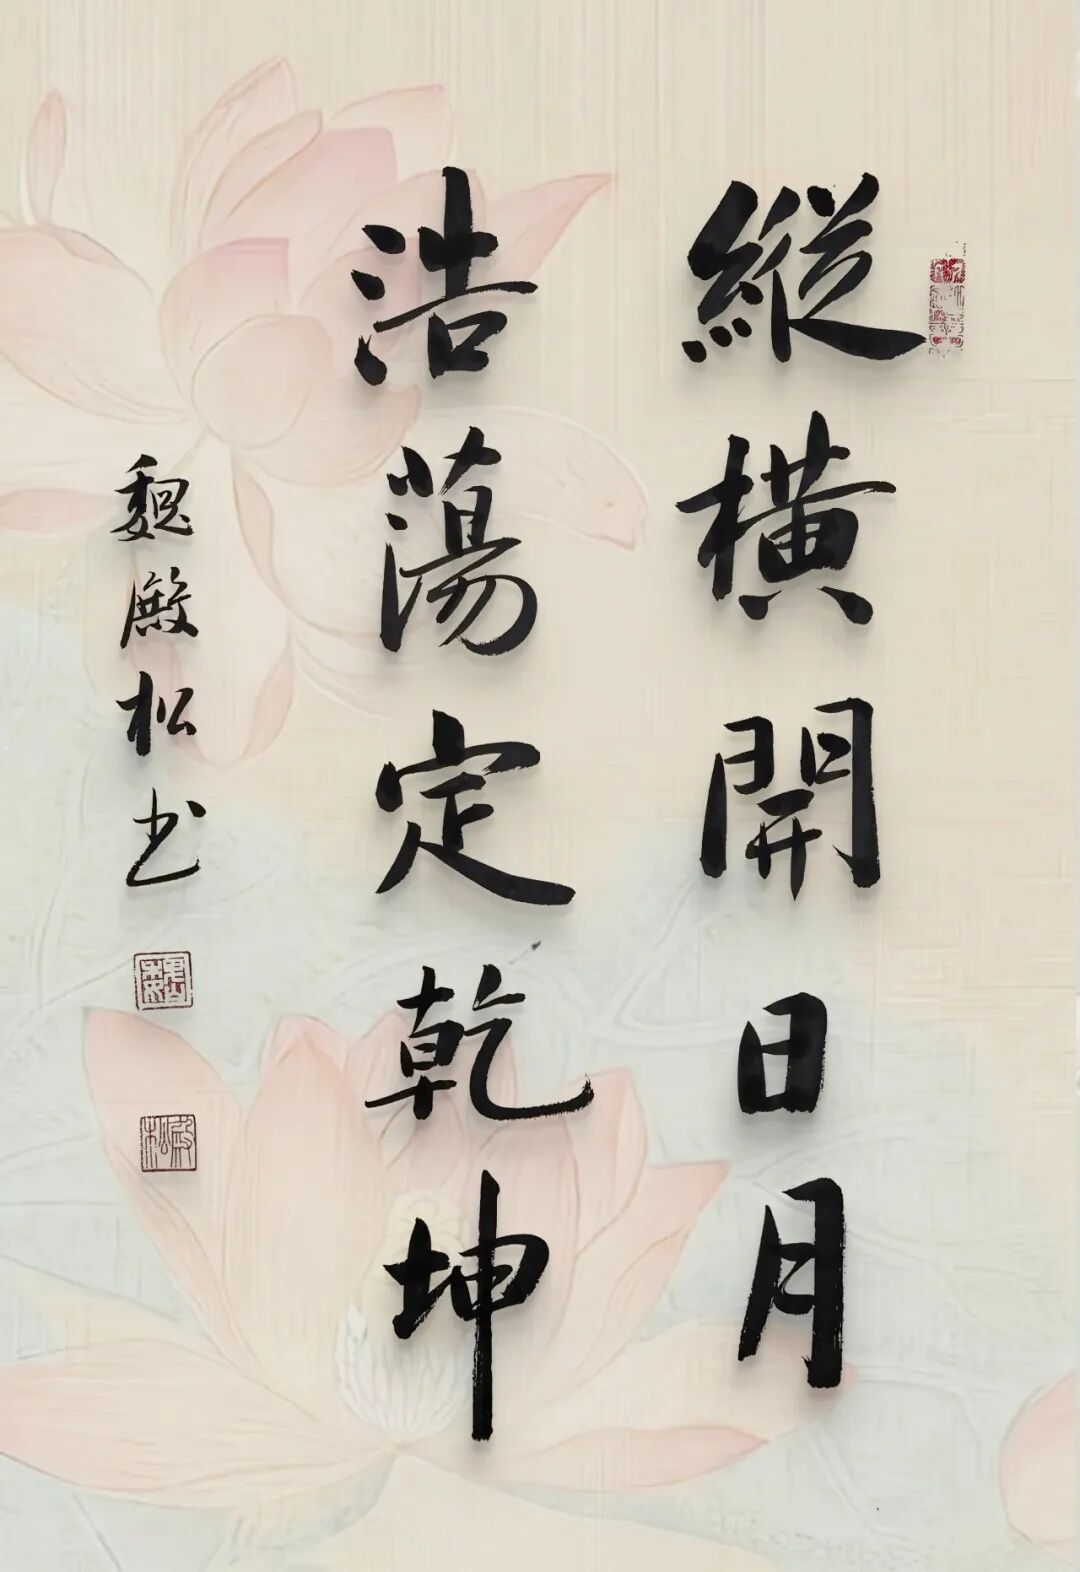 縱橫開日月
浩蕩定乾坤
魏殿松书
魏
殿松